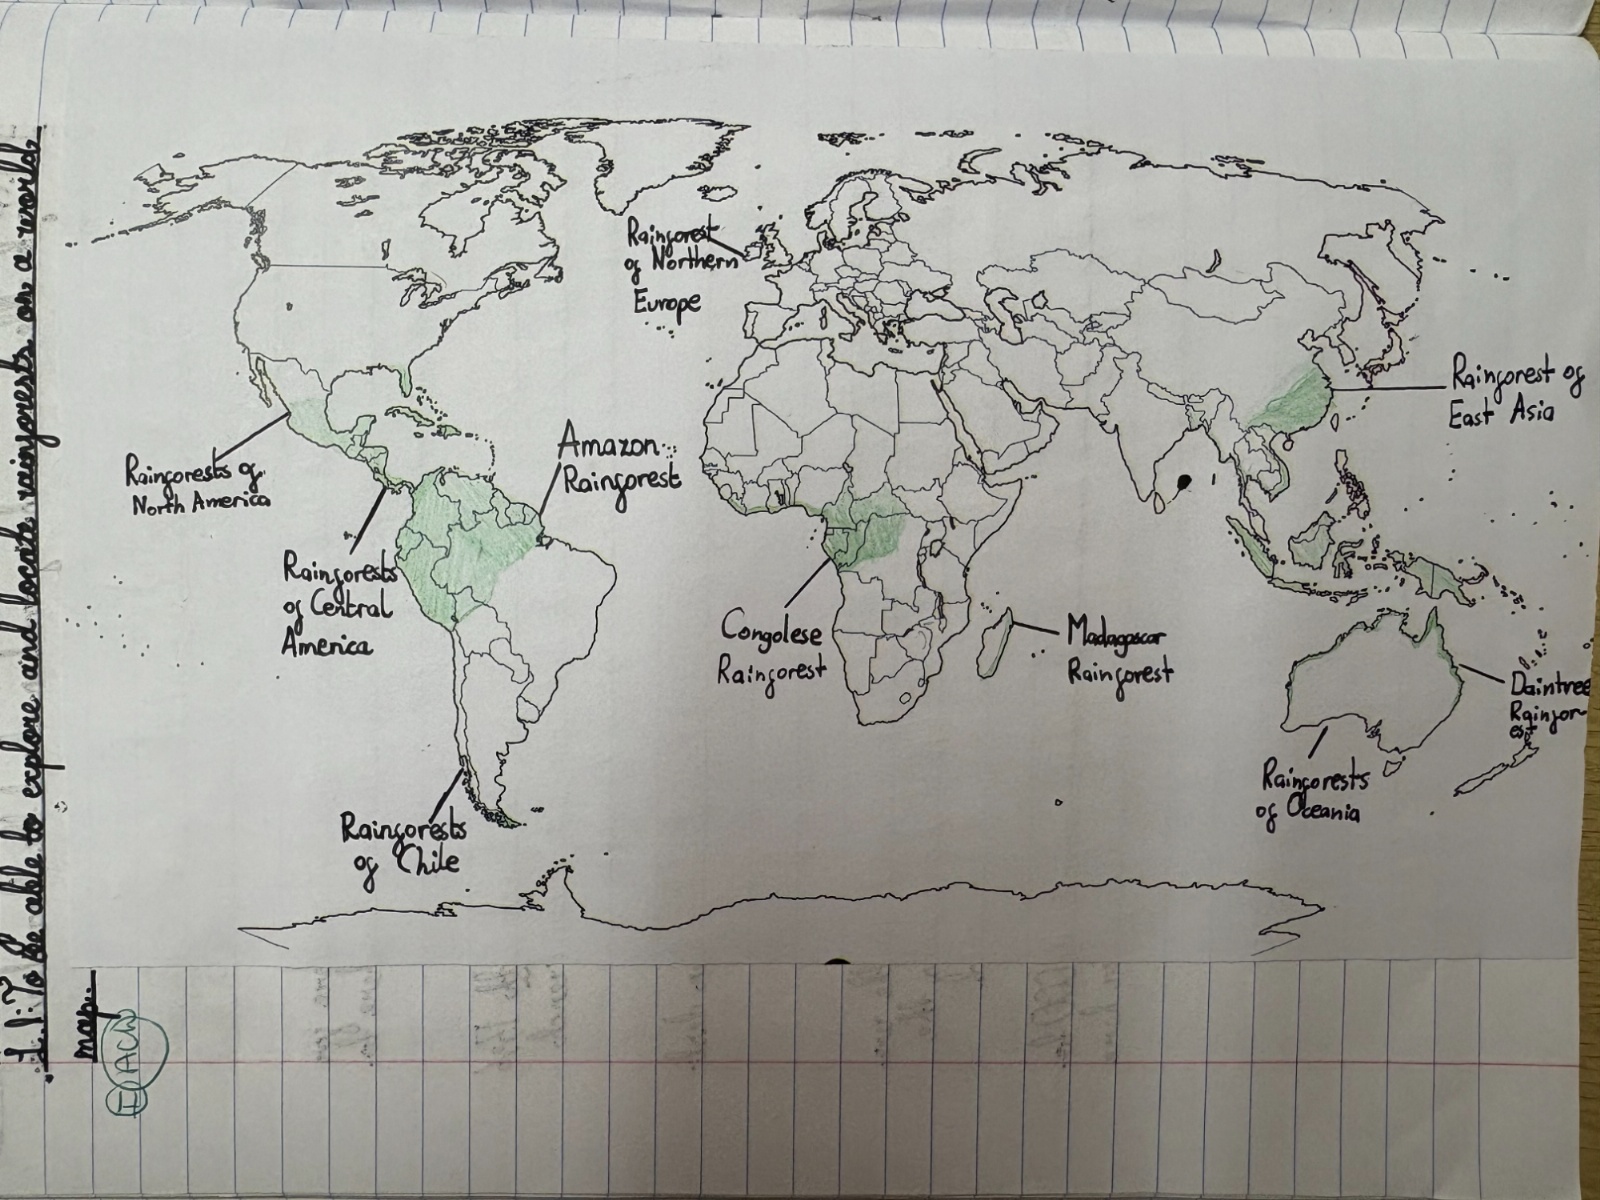 L.I: To be able to explore and locate rainforests on a world
map.
I ACh
Rainforest
of Northern
Europe
Rainforest of
East Asia
Amazon
Rainforest
Rainforests of
North America
Rainforests
of Central
America
Congolese
Rainforest
Madagascar
Rainforest
Daintree
Rainfor-
est
Rainforests
of Oceania
Rainforests
of Chile